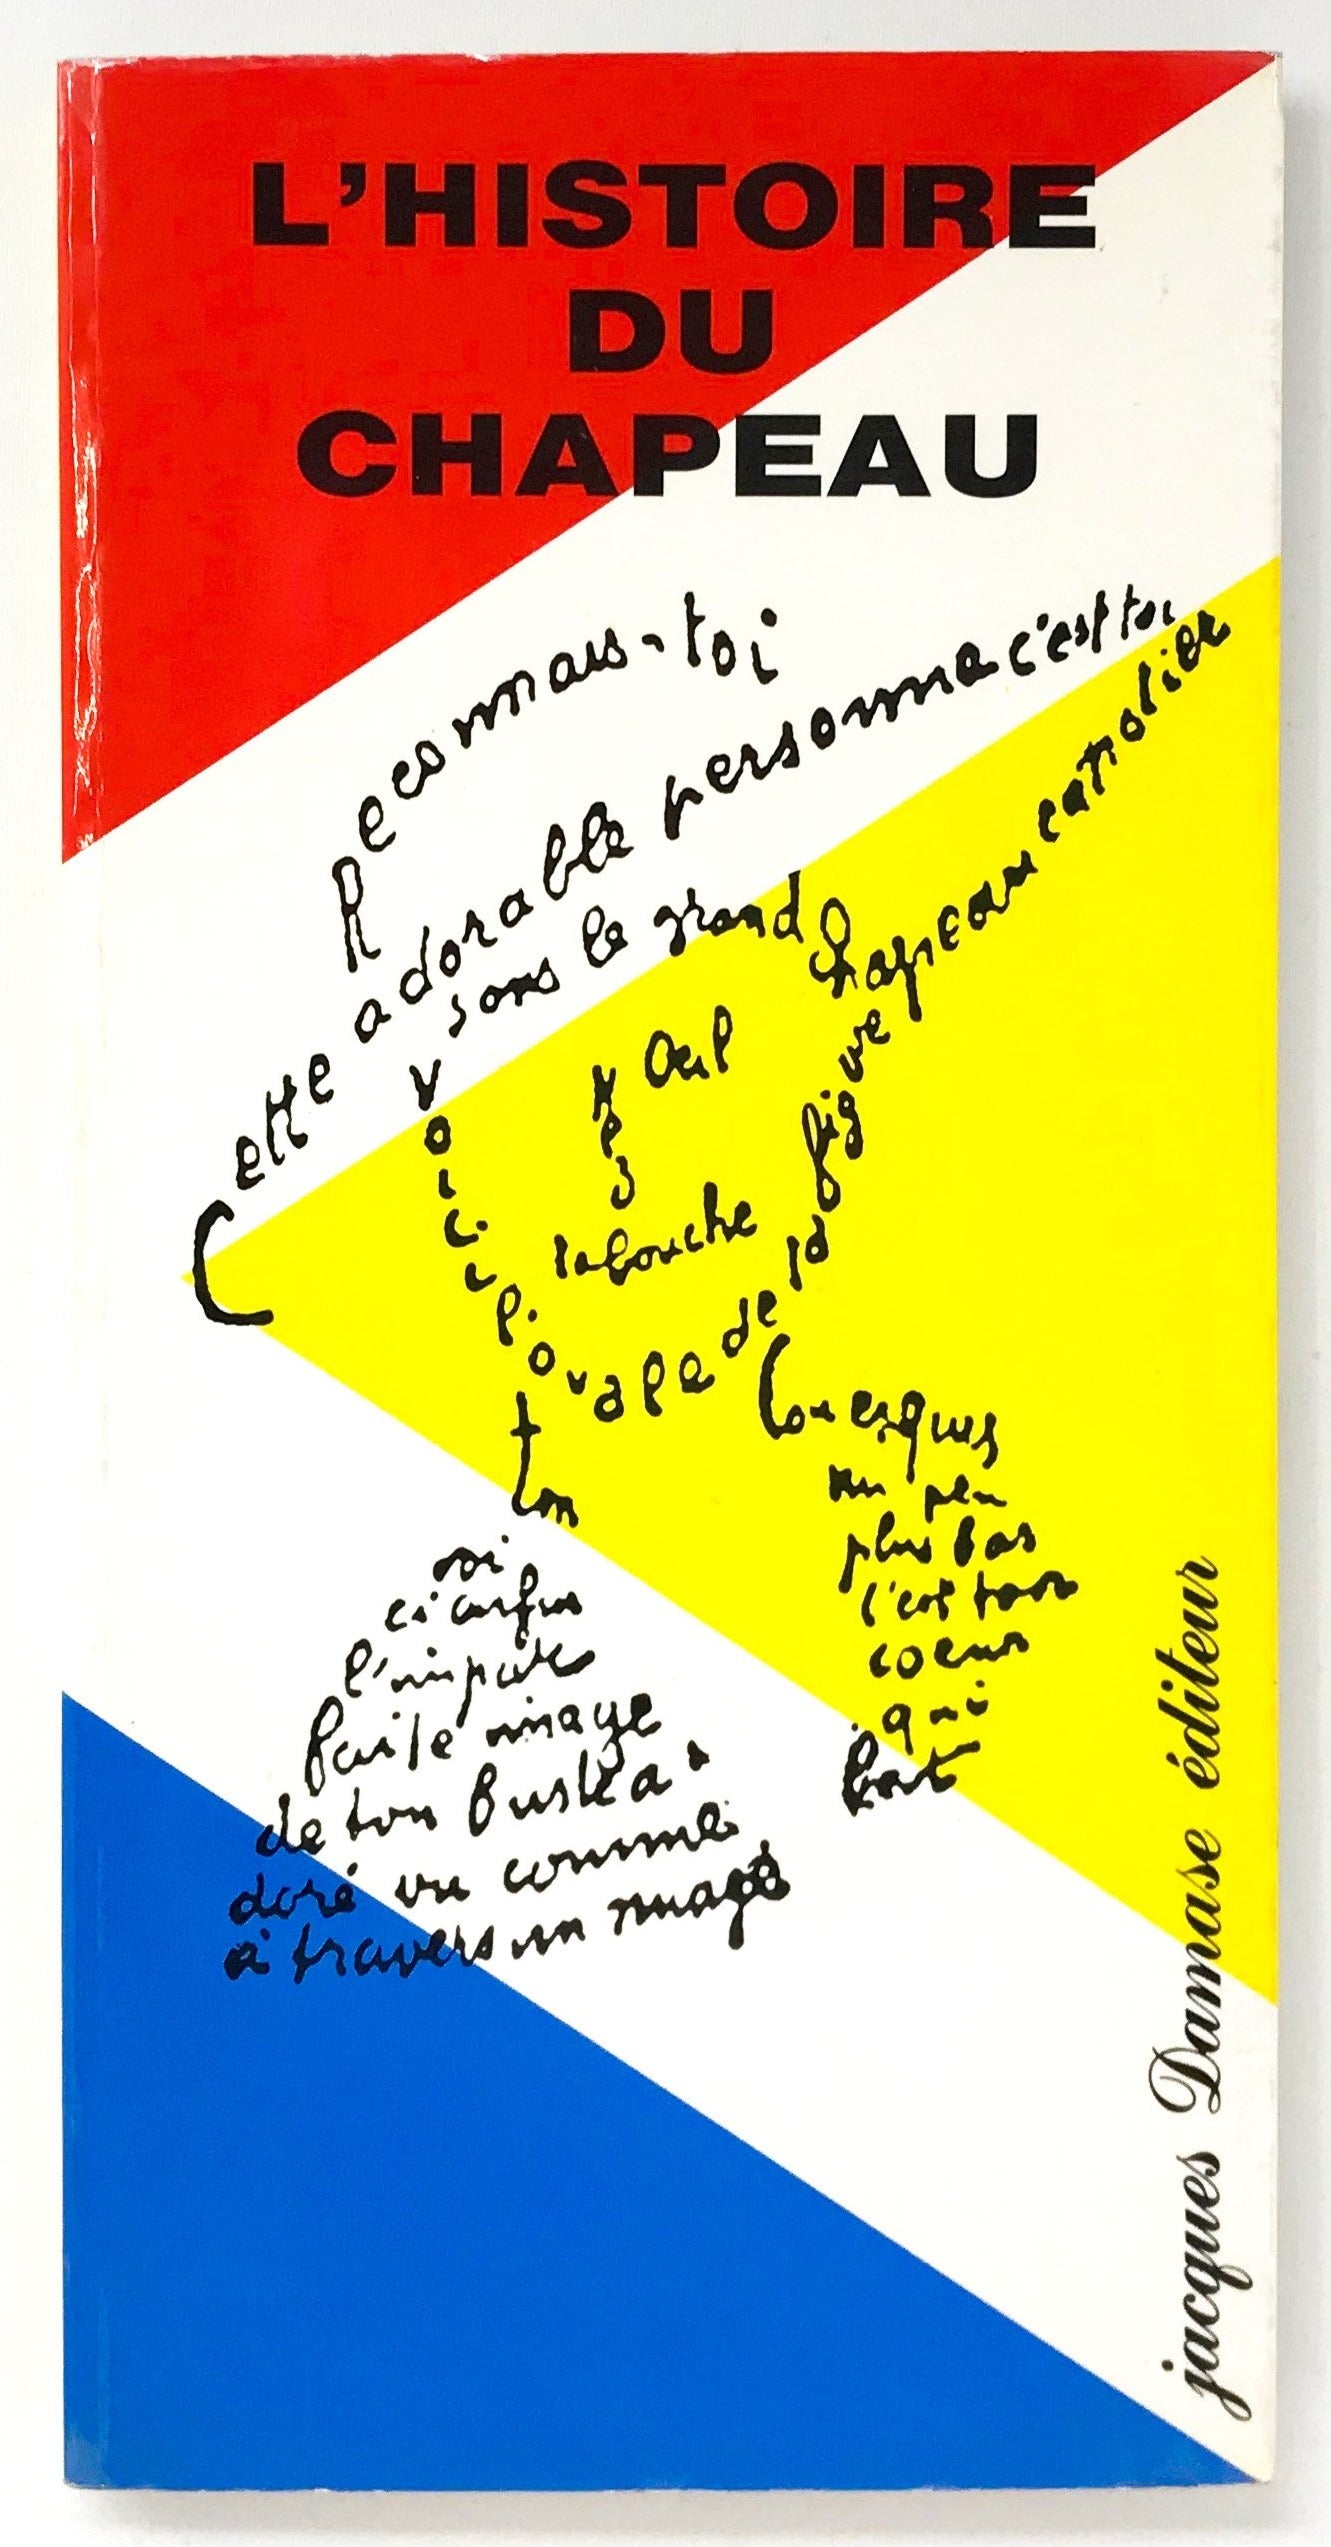 L'HISTOIRE
DU
CHAPEAU
Reconnais-toi
Cette adorable personne c'est toi
sous le grand chapeau canotier
Œil
Nez
la bouche
Voici l'ovale de la figure
ton
Cou exquis
un peu
plus bas
c'est ton
coeur
qui
bat
ci enfin
l'imparfaite image
de ton buste a
doré vu comme
à travers un nuage
jacques Damase éditeur